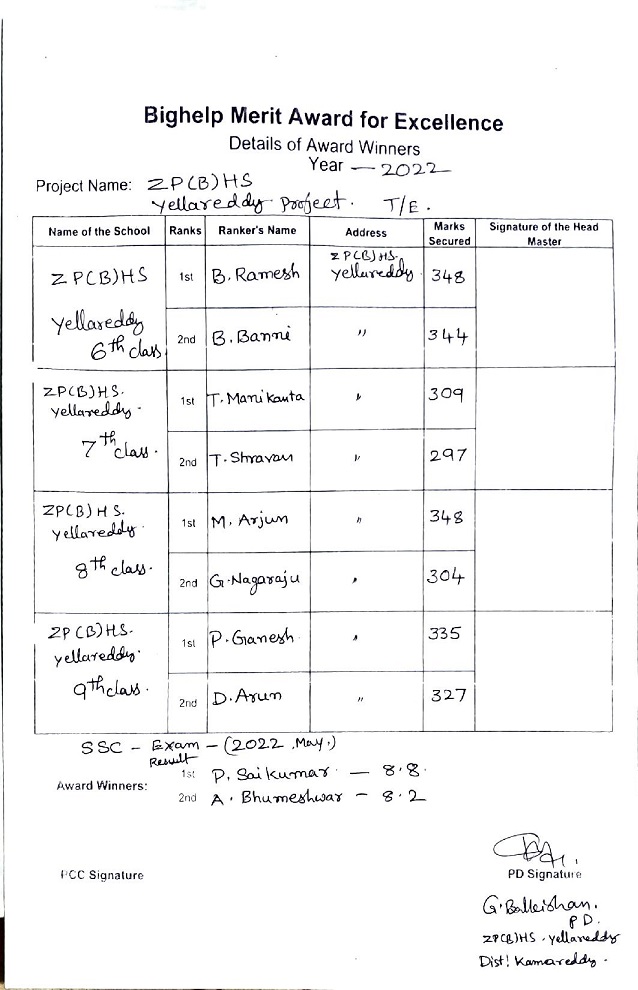 Bighelp Merit Award for Excellence
Details of Award Winners
Year — 2022
Project Name: ZP(B)HS
Yellareddy Project. T/E.
Name of the School Ranks Ranker's Name Address Marks Secured Signature of the Head Master
ZP(B)HS 1st B. Ramesh ZP(B)HS. Yellareddy 348
Yellareddy
6th class 2nd B. Banni " 344
ZP(B)HS. 1st T. Manikanta " 309
Yellareddy.
7th class. 2nd T. Shravan " 297
ZP(B)HS. 1st M. Arjun " 348
Yellareddy.
8th class. 2nd G. Nagaraju " 304
ZP(B)HS. 1st P. Ganesh " 335
Yellareddy.
9th class. 2nd D. Arun " 327
SSC – Exam – (2022 .May.)
Result
Award Winners:
1st P. Saikumar — 8.8.
2nd A. Bhumeshwar – 8.2
PCC Signature
PD Signature
G. Balkishan.
PD.
ZP(B)HS. Yellareddy
Dist! Kamareddy.